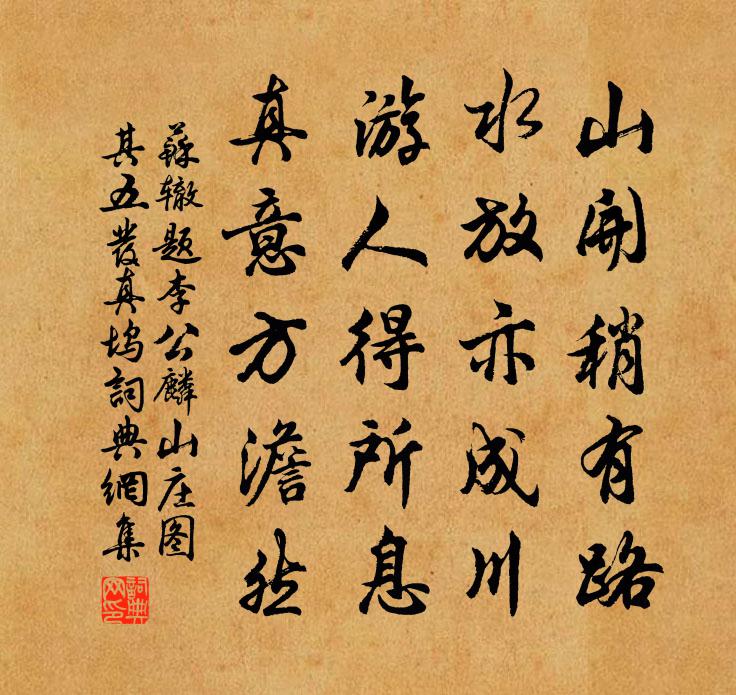 山開稍有路
水放亦成川
游人得所息
真意方澹然
蘇辙题李公麟山庄图
其五發真塢詞典網集
詞典网印